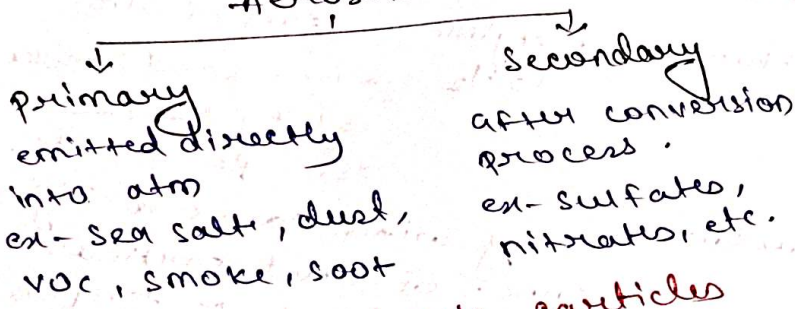 Primary
emitted directly
into atm
ex- sea salt, dust,
VOC, smoke, soot
Secondary
after conversion
process.
ex- sulfates,
nitrates, etc.
particles